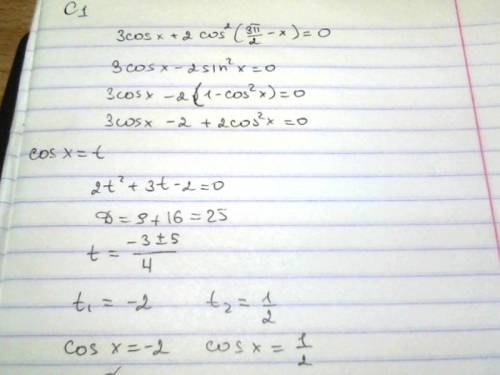 C1
3cosx + 2cos²(3π/2 - x) = 0
3cosx - 2sin²x = 0
3cosx - 2(1 - cos²x) = 0
3cosx - 2 + 2cos²x = 0
cosx = t
2t² + 3t - 2 = 0
D = 9 + 16 = 25
t = (-3 ± 5)/4
t₁ = -2 t₂ = 1/2
cosx = -2 cosx = 1/2